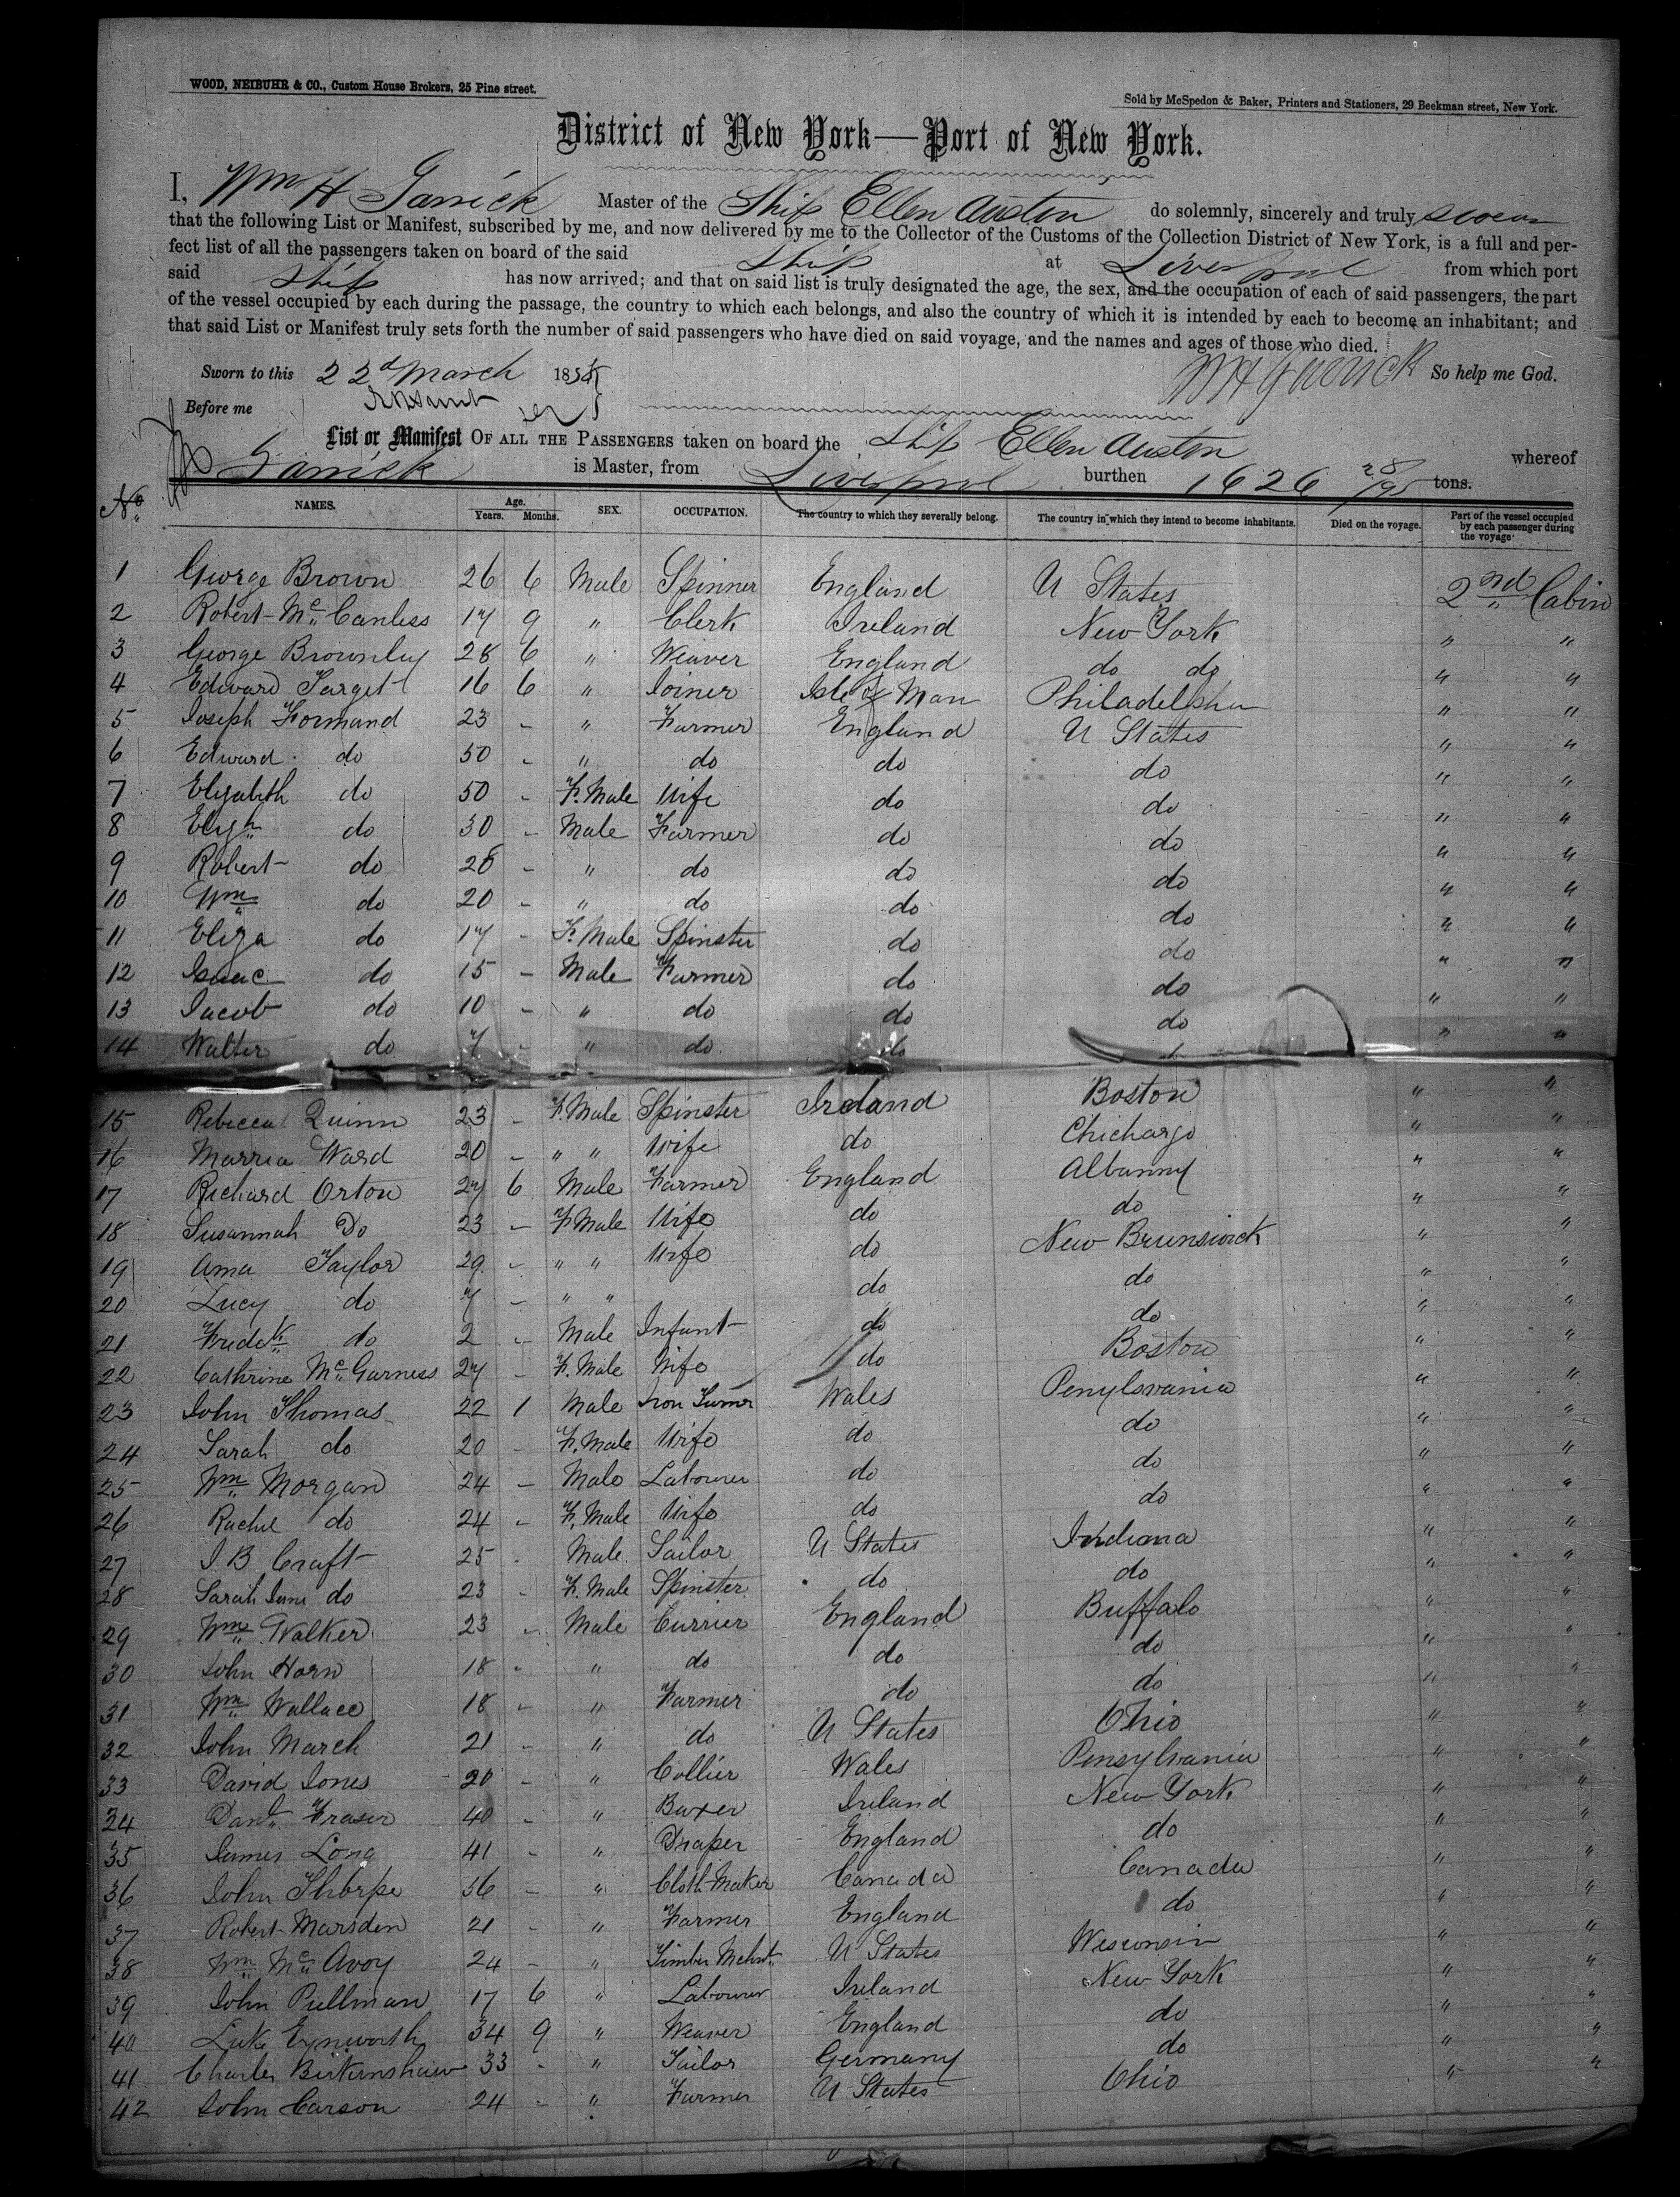 WOOD, NEIBUHR & CO., Custom House Brokers, 25 Pine street.
Sold by McSpedon & Baker, Printers and Stationers, 29 Beekman street, New York.
District of New York—Port of New York.
I, Wm H Garrick Master of the Ship Ellen Austin do solemnly, sincerely and truly swear
that the following List or Manifest, subscribed by me, and now delivered by me to the Collector of the Customs of the Collection District of New York, is a full and per-
fect list of all the passengers taken on board of the said Ship at Liverpool from which port
said Ship has now arrived; and that on said list is truly designated the age, the sex, and the occupation of each of said passengers, the part
of the vessel occupied by each during the passage, the country to which each belongs, and also the country of which it is intended by each to become an inhabitant; and
that said List or Manifest truly sets forth the number of said passengers who have died on said voyage, and the names and ages of those who died.
Sworn to this 22d March 185 WH Garrick So help me God.
Before me
List or Manifest OF ALL THE PASSENGERS taken on board the Ship Ellen Austin whereof
Garrick is Master, from Liverpool burthen 1626 28/95 tons.
No. NAMES. Age. Years. Months. SEX. OCCUPATION. The country to which they severally belong. The country in which they intend to become inhabitants. Died on the voyage. Part of the vessel occupied by each passenger during the voyage
1 George Brown 26 6 Male Spinner England U States 2nd Cabin
2 Robert Mc Canless 17 9 " Clerk Ireland New York " "
3 George Brownley 28 6 " Weaver England do do " "
4 Edward Target 16 6 " Joiner Isle of Man Philadelphia " "
5 Joseph Formand 23 - " Farmer England U States " "
6 Edward do 50 - " do do do " "
7 Elizabeth do 50 - F. Male Wife do do " "
8 do 30 - Male Farmer do do " "
9 Robert do 28 - " do do do " "
10 Wm do 20 - " do do do " "
11 Eliza do 17 - F. Male Spinster do do " "
12 Isaac do 15 - Male Farmer do do " "
13 Jacob do 10 - " do do do " "
14 Walter do 7 - " do do " "
15 Rebecca Quinn 23 - F. Male Spinster Ireland Boston " "
16 Marria Ward 20 - " " Wife do Chichargo " "
17 Richard Orton 27 6 Male Farmer England Albanny " "
18 Susannah Do 23 - F. Male Wife do do " "
19 Ama Taylor 29 - " " Wife do New Brunswick " "
20 Lucy do 7 - " " do do " "
21 Fredck do 2 - Male Infant do do " "
22 Cathrine Mc Garness 27 - F. Male Wife do Boston " "
23 John Thomas 22 1 Male Iron Turner Wales Penylsvania " "
24 Sarah do 20 - F. Male Wife do do " "
25 Wm Morgan 24 - Male Labourer do do " "
26 Rachel do 24 - F. Male Wife do do " "
27 J B Craft 25 - Male Sailor U States Indiana " "
28 Sarah Jane do 23 - F. Male Spinster do do " "
29 Wm Walker 23 - Male Currier England Buffalo " "
30 John Horn 18 - " do do do " "
31 Wm Wallace 18 - " Farmer do do " "
32 John March 21 - " do U States Ohio " "
33 David Jones 20 - " Collier Wales Pensylvania " "
34 Danl Fraser 40 - " Ireland New York " "
35 James Long 41 - " Draper England do " "
36 John Thorpe 36 - " Cloth Maker Canada Canada " "
37 Robert Marsden 21 - " Farmer England do " "
38 Wm Mc Avoy 24 - " Timber Mchnt U States Wisconsin " "
39 John Pullman 17 6 " Labourer Ireland New York " "
40 Luke 34 9 " Weaver England do " "
41 Charles Birkinshaw 33 - " Tailor Germany do " "
42 John Carson 24 - " Farmer U States Ohio " "